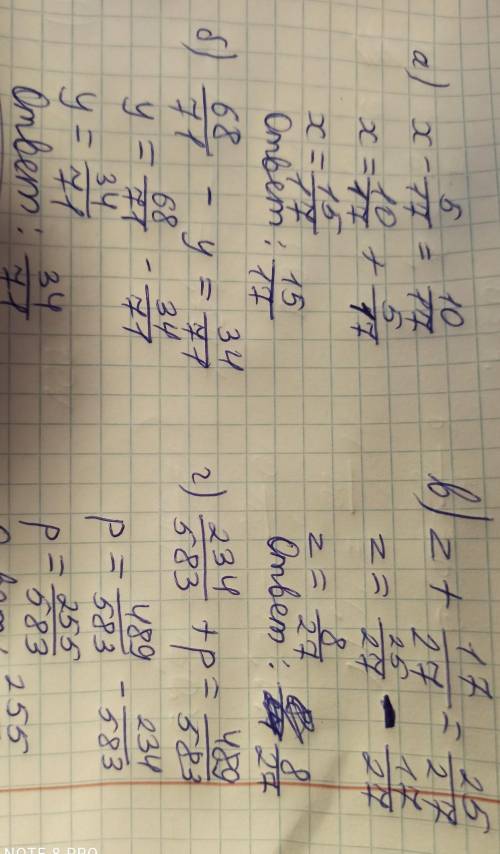 а) x - 5/17 = 10/17
x = 10/17 + 5/17
x = 15/17
Ответ: 15/17
б) 68/71 - y = 34/71
y = 68/71 - 34/71
y = 34/71
Ответ: 34/71
в) z + 17/27 = 25/27
z = 25/27 - 17/27
z = 8/27
Ответ: 8/27
г) 234/583 + p = 489/583
p = 489/583 - 234/583
p = 255/583
Ответ: 255
NOTE 8 PRO